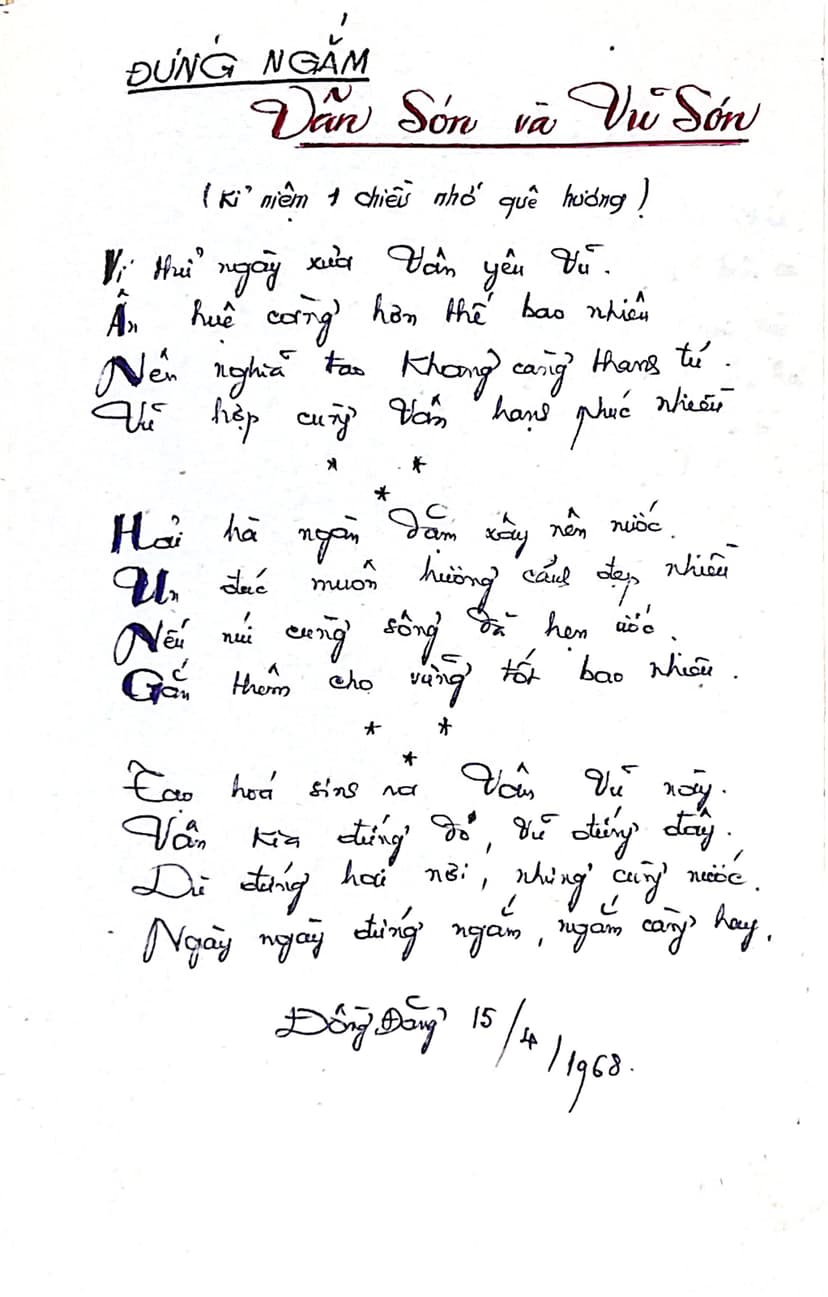 ĐỨNG NGẮM
Vân Sơn và Vũ Sơn
(Kỉ niệm 1 chiều nhớ quê hương)
Vị thuở ngày xưa Vân yêu Vũ.
Ân huệ càng hơn thế bao nhiêu
Nên nghĩa tao khang càng thang tứ.
Vũ hợp cùng Vân hạnh phúc nhiều
* *
*
Hải hà ngàn dặm xây nên nước.
Un đúc muôn hương cảnh đẹp nhiều
Nếu núi cùng sông đã hẹn ước.
Gắn thêm cho vững tốt bao nhiêu.
* *
*
Tạo hoá sinh ra Vân Vũ này.
Vân kia đứng đó, Vũ đứng đây.
Dù đứng hai nơi, nhưng cùng nước.
Ngày ngày đứng ngắm, ngắm càng hay.
Đồng Đăng 15/4/1968.